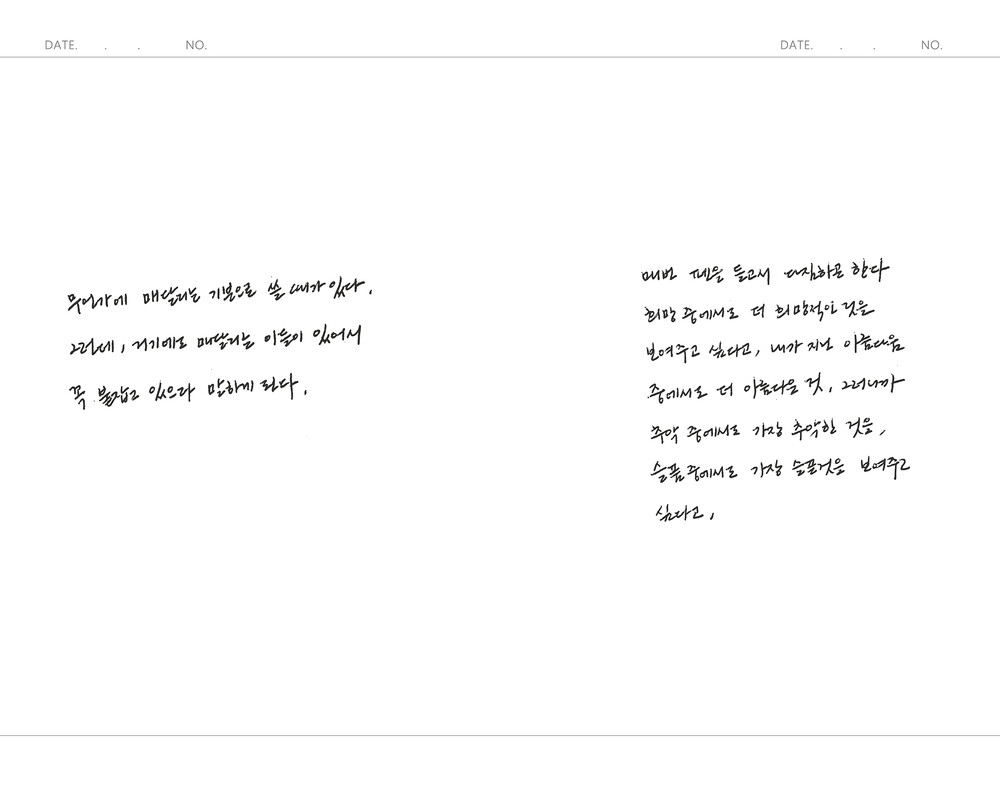 DATE. . . NO.
무언가에 매달리는 기분으로 쓸 때가 있다.
그런데, 거기에도 매달리는 이들이 있어서
꼭 붙잡고 있으라 말하게 된다.
DATE. . . NO.
매번 펜을 들고서 다짐하곤 한다
희망 중에서도 더 희망적인 것을
보여주고 싶다고, 내가 지닌 아름다움
중에서도 더 아름다운 것, 그러니까
추악 중에서도 가장 추악한 것을,
슬픔 중에서도 가장 슬픈것을 보여주고
싶다고,